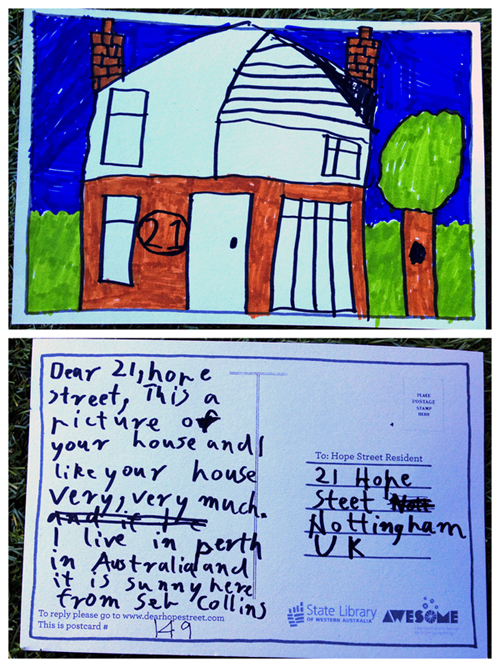 21
Dear 21, hope
street, This a
picture of
your house and I
like your house
very, very much.
I live in perth
in Australia and
it is sunny here
from Seb Collins
To reply please go to www.dearhopestreet.com
This is postcard # 149
PLACE
POSTAGE
STAMP
HERE
To: Hope Street Resident
21 Hope
Steet
Nottingham
UK
State Library
OF WESTERN AUSTRALIA
AWESOME